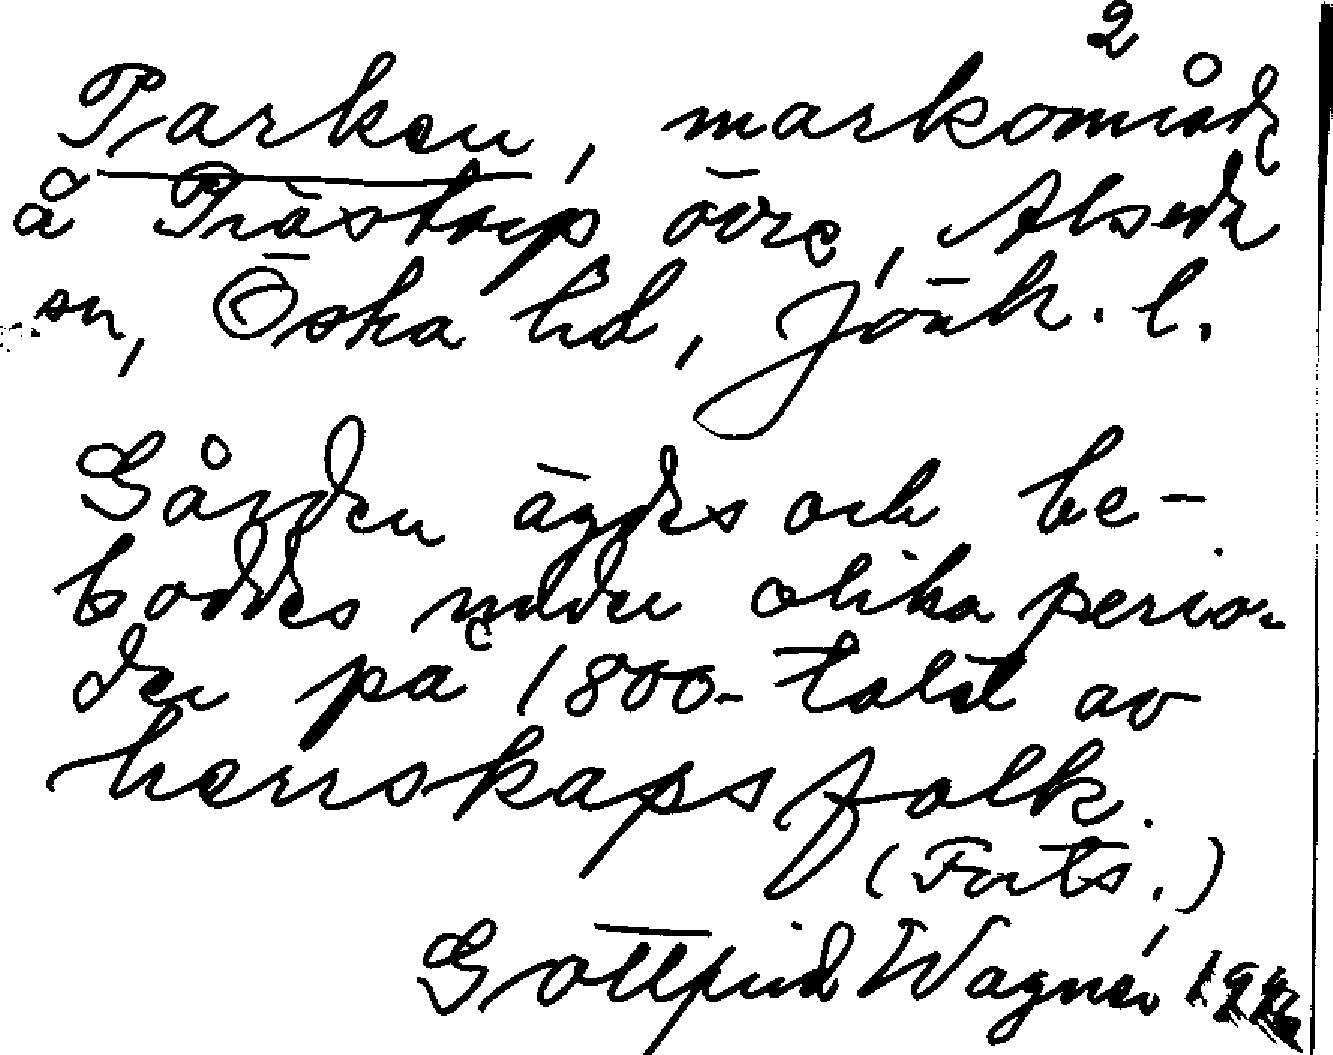 2
Parken, markområde
å Prästorp övre, Alseda
sn, Östra hd, Jönk. l.
Gården ägdes och be-
boddes under olika perio-
der på 1800-talet av
herrskapsfolk.
(Forts.)
Gottfrid Wagnér